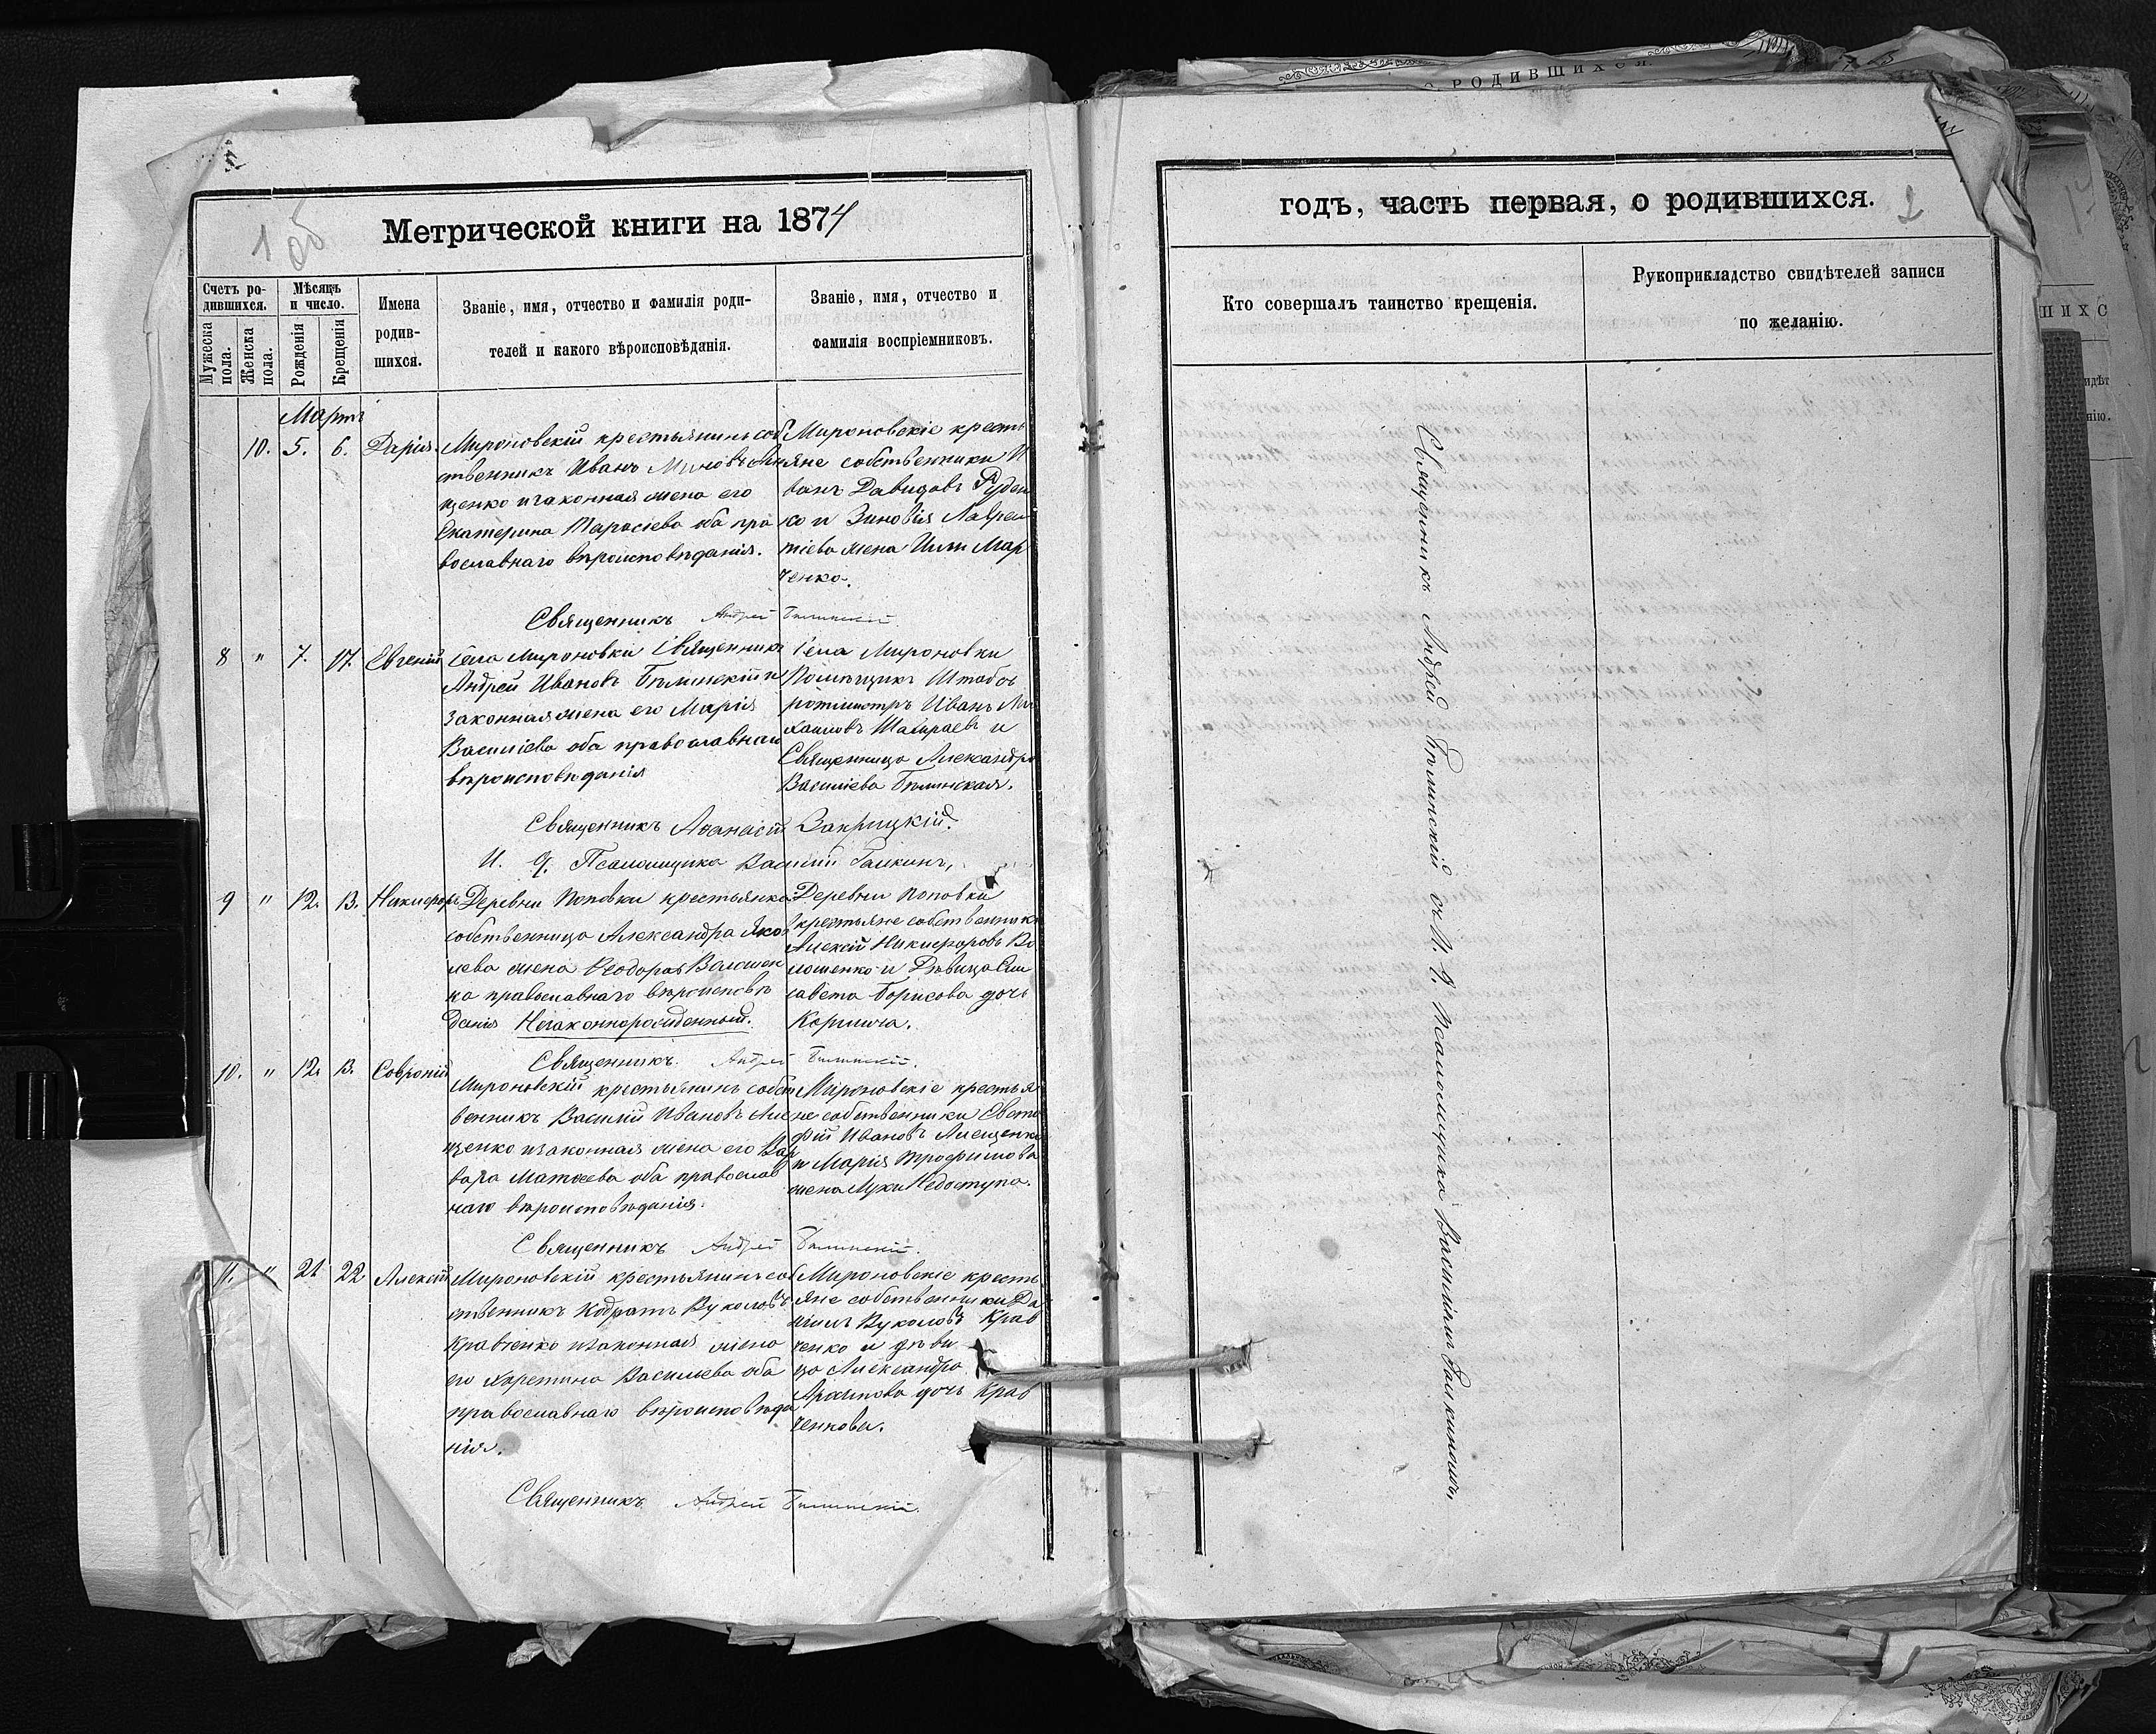 1 об
Метрической книги на 1874
Счетъ ро-
дившихся.
Мѣсяцъ
и число.
Мужеска
пола.
Женска
пола.
Рожденія
Крещенія
Имена
родив-
шихся.
Званіе, имя, отчество и фамилія роди-
телей и какого вѣроисповѣданія.
Званіе, имя, отчество и
фамилія воспріемниковъ.
Мартъ
10. 5. 6. Дарія.
Мироновскій крестьянинъ соб
ственникъ Иванъ
щенко и законная жена его
Екатерина Тарасіева оба пра
вославнаго вѣроисповѣданія.
Мироновскіе кресть
яне собственники И
ванъ Давидовъ Руден
ко и Зиновія Лаврен
тіева жена Иліи Мар
ченко.
Священникъ Андрей Бѣлинскій.
8 " 7. 17. Евгеній
Села Мироновки Священникъ
Андрей Ивановъ Бѣлинскій и
законная жена его Марія
Василіева оба православнаго
вѣроисповѣданія
Села Мироновки
Помѣщикъ Штабсъ
ротмистръ Иванъ Ми
хаиловъ и
Священница Александра
Василіева Бѣлинская.
Священникъ Аѳанасій Закрицкій.
И. д. Псаломщика Василій Галкинъ,
9 " 12. 13. Никифоръ
Деревни Поповки крестьянка
собственница Александра Яков
лева жена Ѳеодора Волошен
ка православнаго вѣроисповѣ
данія Незаконнорожденный.
Деревни Поповки
крестьяне собственники
Алексій Никифоровъ Во
лошенко и Дѣвица Ели
савета Борисова дочь
Священникъ. Андрей Бѣлинскій.
10. " 12. 13. Софроній
Мироновскій крестьянинъ собст
венникъ Василій Ивановъ Лие
щенко и законная жена его Вар
вара Матѳеева оба православ
наго вѣроисповѣданія.
Мироновскіе крестья
не собственники Евста
фій Ивановъ Лиещенко
и Марія Трофимова
жена Луки Недоступа.
Священникъ Андрей Бѣлинскій.
11. " 21 22 Алексій
Мироновскій крестьянинъ соб
ственникъ Кодратъ Вуколовъ
Кравченко и законная жена
его Христина Васильева оба
православнаго вѣроисповѣда
нія.
Мироновскіе кресть
яне собственники Да
ніилъ Вуколовъ Крав
ченко и дѣви
ца Александра
Архипова дочь Крав
ченкова.
Священникъ Андрей Бѣлинскій.
годъ, часть первая, о родившихся.
2
Кто совершалъ таинство крещенія.
Рукоприкладство свидѣтелей записи
по желанію.
Священникъ Андрей Бѣлинскій съ И. д. Псаломщика Василіемъ Галкиномъ,
РОДИВШИХСЯ.